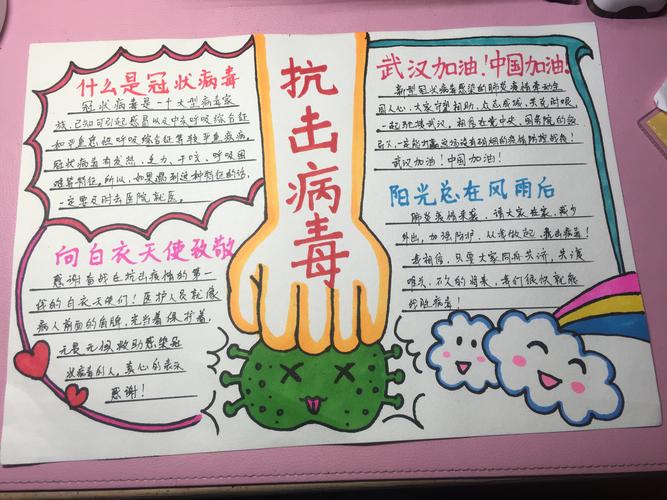 什么是冠状病毒
冠状病毒是一个大型病毒家
族,已知可引起感冒以及中东呼吸综合征
和严重急性呼吸综合征等较严重疾病.
冠状病毒有发热、乏力、干咳、呼吸困
难等特征,所以,如果遇到这种特征的话,
一定要及时去医院就医.
向白衣天使致敬
感谢奋战在抗击疫情的第一
线的白衣天使们!医护人员就像
病人前面的盾牌,充当着保护着,
无畏无惧救助感染冠
状病毒的人,真心的表示
感谢!
抗击病毒
武汉加油!中国加油!
新型冠状病毒感染的肺炎疫情牵动全
国人心.大家守望相助、众志成城、共克时艰,
一起驰援武汉,相信在党中央、国务院的领
导下,一定能打赢这场没有硝烟的疫情防控战役!
武汉加油!中国加油!
阳光总在风雨后
肺炎疫情来袭,请大家在家,减少
外出,加强防护,从我做起,击出病毒!
我相信,只要大家同舟共济,共渡
难关,不久的将来,我们很快就能
战胜病毒!